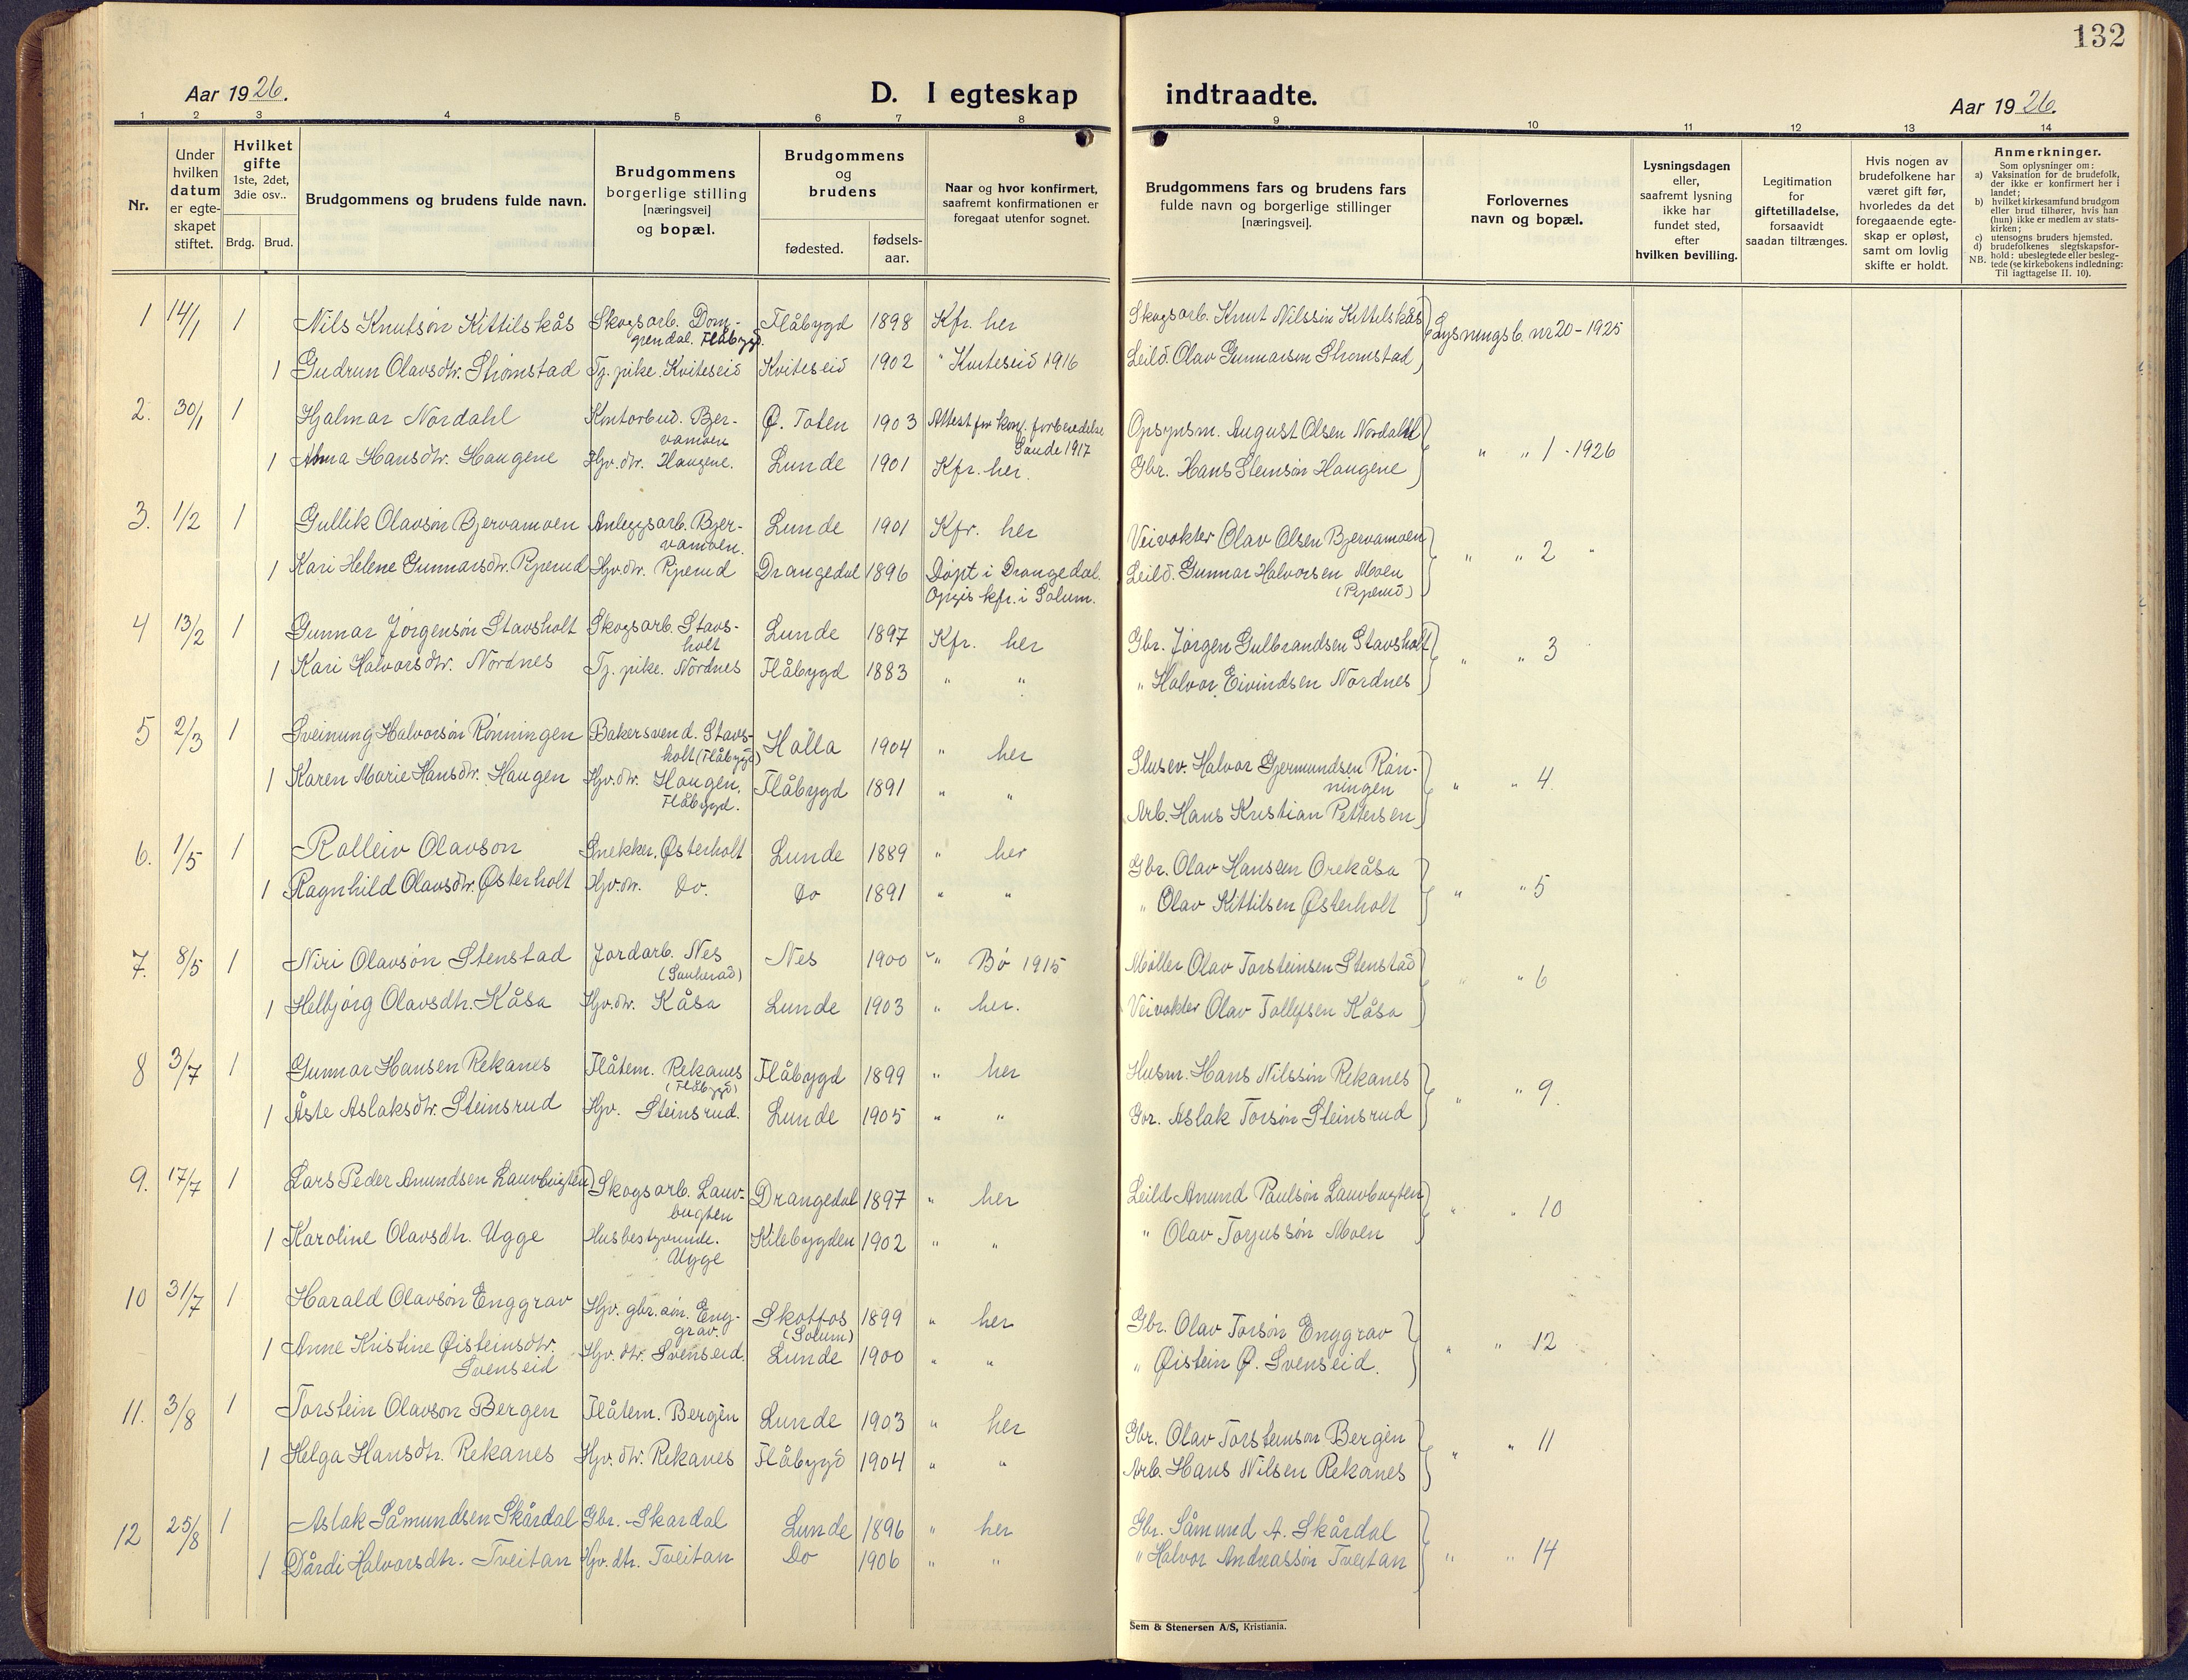 132
Aar 1926.
D. I egteskap indtraadte.
Aar 1926.
1 2 3 4 5 6 7 8 9 10 11 12 13 14
Nr.
Under hvilken datum er egteskapet stiftet.
Hvilket gifte 1ste, 2det, 3die osv..
Brdg. Brud.
Brudgommens og brudens fulde navn.
Brudgommens borgerlige stilling [næringsvei] og bopæl.
Brudgommens og brudens
fødested.
fødselsaar.
Naar og hvor konfirmert, saafremt konfirmationen er foregaat utenfor sognet.
Brudgommens fars og brudens fars fulde navn og borgerlige stillinger [næringsvei].
Forlovernes navn og bopæl.
Lysningsdagen eller, saafremt lysning ikke har fundet sted, efter hvilken bevilling.
Legitimation for giftetilladelse, forsaavidt saadan tiltrænges.
Hvis nogen av brudefolkene har været gift før, hvorledes da det foregaaende egteskap er opløst, samt om lovlig skifte er holdt.
Anmerkninger.
Som oplysninger om:
a) Vaksination for de brudefolk, der ikke er konfirmert her i landet;
b) hvilket kirkesamfund brudgom eller brud tilhører, hvis han (hun) ikke er medlem av statskirken;
c) utensogns bruders hjemsted.
d) brudefolkenes slegtskapsforhold: ubeslegtede eller beslegtede (se kirkebokens indledning:
NB. Til iagttagelse II. 10).
1 14/1 1 Nils Knutsøn Kittilskås Skogsarb. Domgrendal. Flåbygd. Flåbygd 1898 Kfr. her Skogsarb. Knut Nilssøn Kittelskås Lysningsb. nr 20 - 1925
1 Gudrun Olavsdtr. Strømstad Tj. pike. Kviteseid Kviteseid 1902 " Kviteseid 1916 Leild. Olav Gunnarsen Strømstad
2. 30/1 1 Hjalmar Nordahl Kontorbud. Bjervamoen Ø. Toten 1903 Attest for konf. forberedelse Sande 1917 Opsynsm. August Olsen Nordahl " " 1 - 1926
1 Anna Hansdtr. Haugene Hjv. dtr. Haugene. Lunde 1901 Kfr. her. Gbr. Hans Steinsøn Haugene
3. 1/2 1 Gullik Olavsøn Bjervamoen Anleggsarb. Bjervamoen. Lunde 1901 Kfr. her Veivokter Olav Olsen Bjervamoen " " 2 "
1 Kari Helene Gunnarsdtr. Piperud Hjv. dtr. Piperud Drangedal 1896 Døpt i Drangedal. Opgis kfr. i Solum. Leild. Gunnar Halvorsen Moen (Piperud)
4 13/2 1 Gunnar Jørgensøn Stavsholt Skogsarb. Stavsholt Lunde 1897 Kfr. her Gbr. Jørgen Gulbrandsen Stavsholt " " 3
1 Kari Halvorsdtr. Nordnes Tj. pike. Nordnes Flåbygd 1883 " " " Halvor Eivindsen Nordnes
5 2/3 1 Sveinung Halvorsøn Rønningen Bakersvend. Stavsholt (Flåbygd) Holla 1904 " her Slusev. Halvor Gjermundsen Rønningen " " 4.
1 Karen Marie Hansdtr. Haugen Hjv. dtr. Haugen, Flåbygd. Flåbygd 1891 " " Arb. Hans Kristian Pettersen
6. 1/5 1 Rolleiv Olavson Snekker. Østerholt Lunde 1889 " her Gbr. Olav Hansen Orekåsa " " 5
1 Ragnhild Olavsdtr. Østerholt Hjv. dtr. Do. Do 1891 " " " Olav Kittilsen Østerholt
7. 8/5 1 Niri Olavsøn Stenstad Jordarb. Nes (Sauherad) Nes 1900 " Bø 1915 Møller Olav Torsteinsen Stenstad " " 6
1 Helbjørg Olavsdtr. Kåsa Hjv. dtr. Kåsa Lunde 1903 " her. Veivokter Olav Tollefsen Kåsa
8 3/7 1 Gunnar Hansen Rekanes Flåtem. Rekanes (Flåbygd) Flåbygd 1899 " her Husm. Hans Nilssøn Rekanes " " 9.
1 Åste Aslaksdtr. Steinsrud Hjv. Steinsrud. Lunde 1905 " " Gbr. Aslak Torsøn Steinsrud
9. 17/7 1 Lars Peder Anundsen Lauvbugten Skogsarb. Lauvbugten Drangedal 1897 " her Leild Anund Paulsøn Lauvbugten " " 10
1 Karoline Olavsdtr. Ugge Husbestyrende. Ugge Kilebygden 1902 " " " Olav Torjussøn Moen
10 31/7 1 Harald Olavsøn Enggrav Hjv. gbr. søn. Enggrav. Skotfos (Solum) 1899 " her Gbr. Olav Torsøn Enggrav " " 12
1 Anne Kristine Øisteinsdtr. Svenseid Hjv. dtr. Svenseid. Lunde 1900 " " " Øistein Ø. Svenseid.
11. 3/8 1 Torstein Olavson Bergen Flåtem. Bergen Lunde 1903 " her Gbr. Olav Torsteinson Bergen " " 11
1 Helga Hansdtr. Rekanes Hjv. dtr. Rekanes Flåbygd 1904 " " Arb. Hans Nilsen Rekanes
12 25/8 1 Aslak Såmundsen Skårdal Gbr. Skardal Lunde 1896 " her Gbr. Såmund A. Skårdal " " 14
1 Dårdi Halvorsdtr. Tveitan Hjv. dtr. Tveitan Do 1906 " " " Halvor Andreassøn Tveitan
Sem & Stenersen A/S, Kristiania.